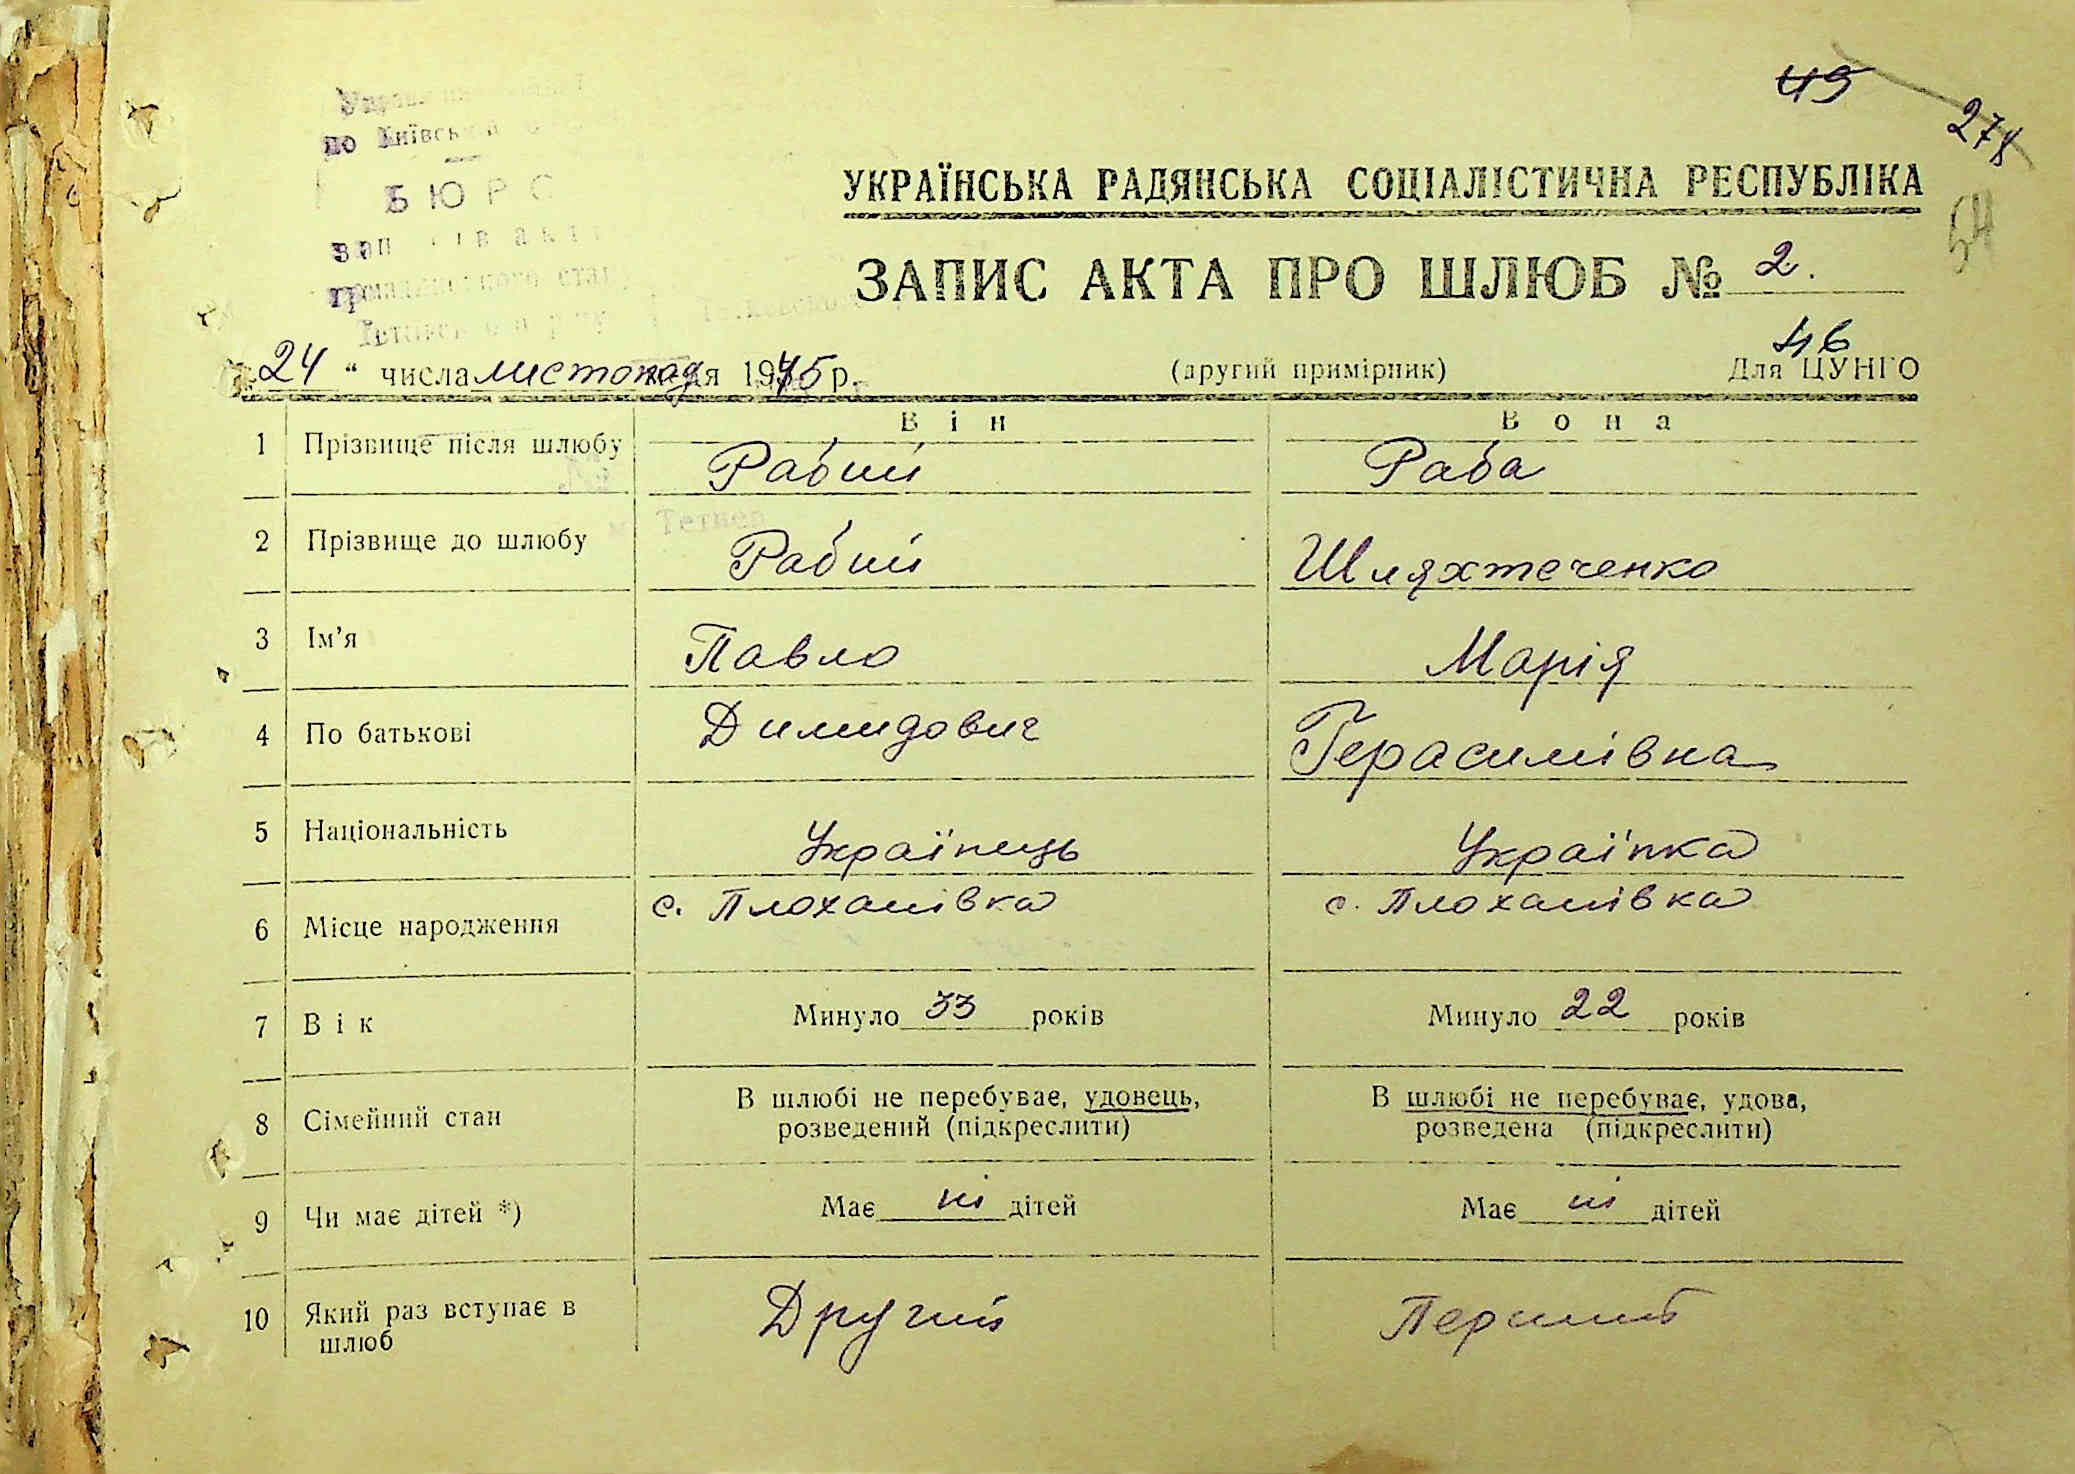 45
278
54
по Київськ
БЮРО
УКРАЇНСЬКА РАДЯНСЬКА СОЦІАЛІСТИЧНА РЕСПУБЛІКА
ЗАПИС АКТА ПРО ШЛЮБ № 2.
46
24 " числа листопада 1945 р. (другий примірник) Для ЦУНГО
Він Вона
1 Прізвище після шлюбу Рабий Раба
м. Тетиев
2 Прізвище до шлюбу Рабий Шляхтеченко
3 Ім'я Павло Марія
4 По батькові Димидович Герасимівна
5 Національність Українець Українка
6 Місце народження с. Плоханівка с. Плоханівка
7 Вік Минуло 33 років Минуло 22 років
8 Сімейний стан В шлюбі не перебуває, удовець, В шлюбі не перебуває, удова,
розведений (підкреслити) розведена (підкреслити)
9 Чи має дітей *) Має ні дітей Має ні дітей
10 Який раз вступає в Другий Перший
шлюб